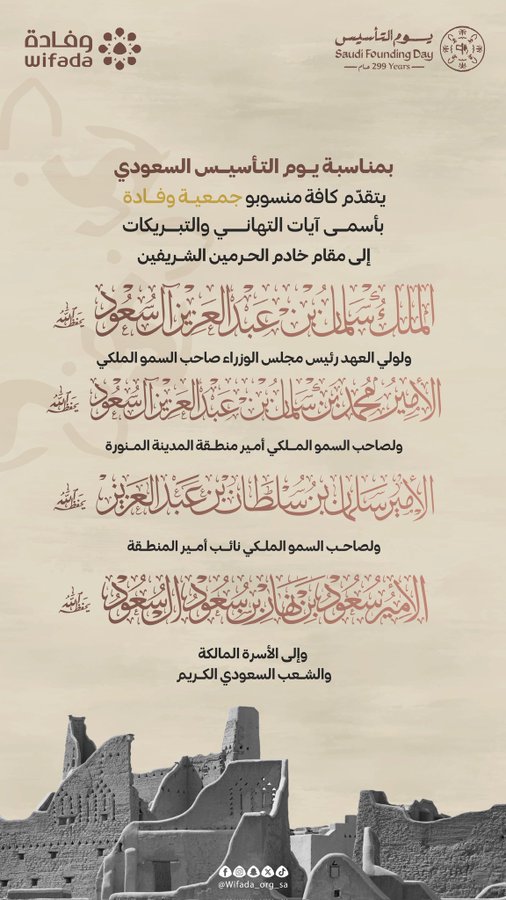 يوم التأسيس
Saudi Founding Day
299 Years عام
وفادة
wifada
بمناسبة يوم التأسيس السعودي
يتقدّم كافة منسوبو جمعية وفادة
بأسمى آيات التهاني والتبريكات
إلى مقام خادم الحرمين الشريفين
الملك سلمان بن عبدالعزيز آل سعود يحفظه الله
ولولي العهد رئيس مجلس الوزراء صاحب السمو الملكي
الأمير محمد بن سلمان بن عبدالعزيز آل سعود يحفظه الله
ولصاحب السمو الملكي أمير منطقة المدينة المنورة
الأمير سلمان بن سلطان بن عبدالعزيز يحفظه الله
ولصاحب السمو الملكي نائب أمير المنطقة
الأمير سعود بن نهار بن سعود آل سعود يحفظه الله
وإلى الأسرة المالكة
والشعب السعودي الكريم
@Wifada_org_sa